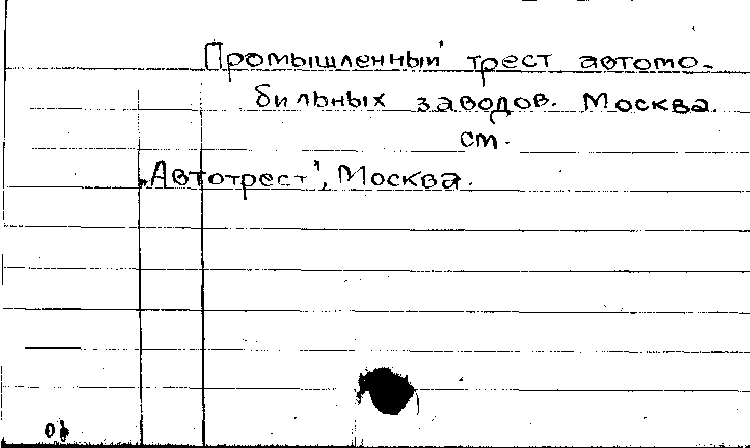 Промышленный трест автомо-
бильных заводов. Москва.
см.
„Автотрест", Москва.